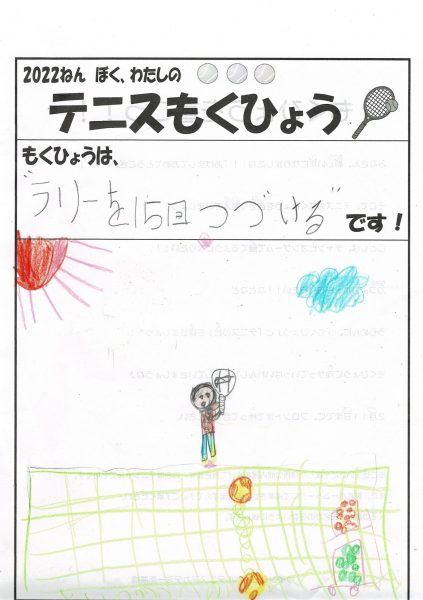 2022ねん ぼく、わたしの
テニスもくひょう
もくひょうは、
"ラリーを15回つづける" です！